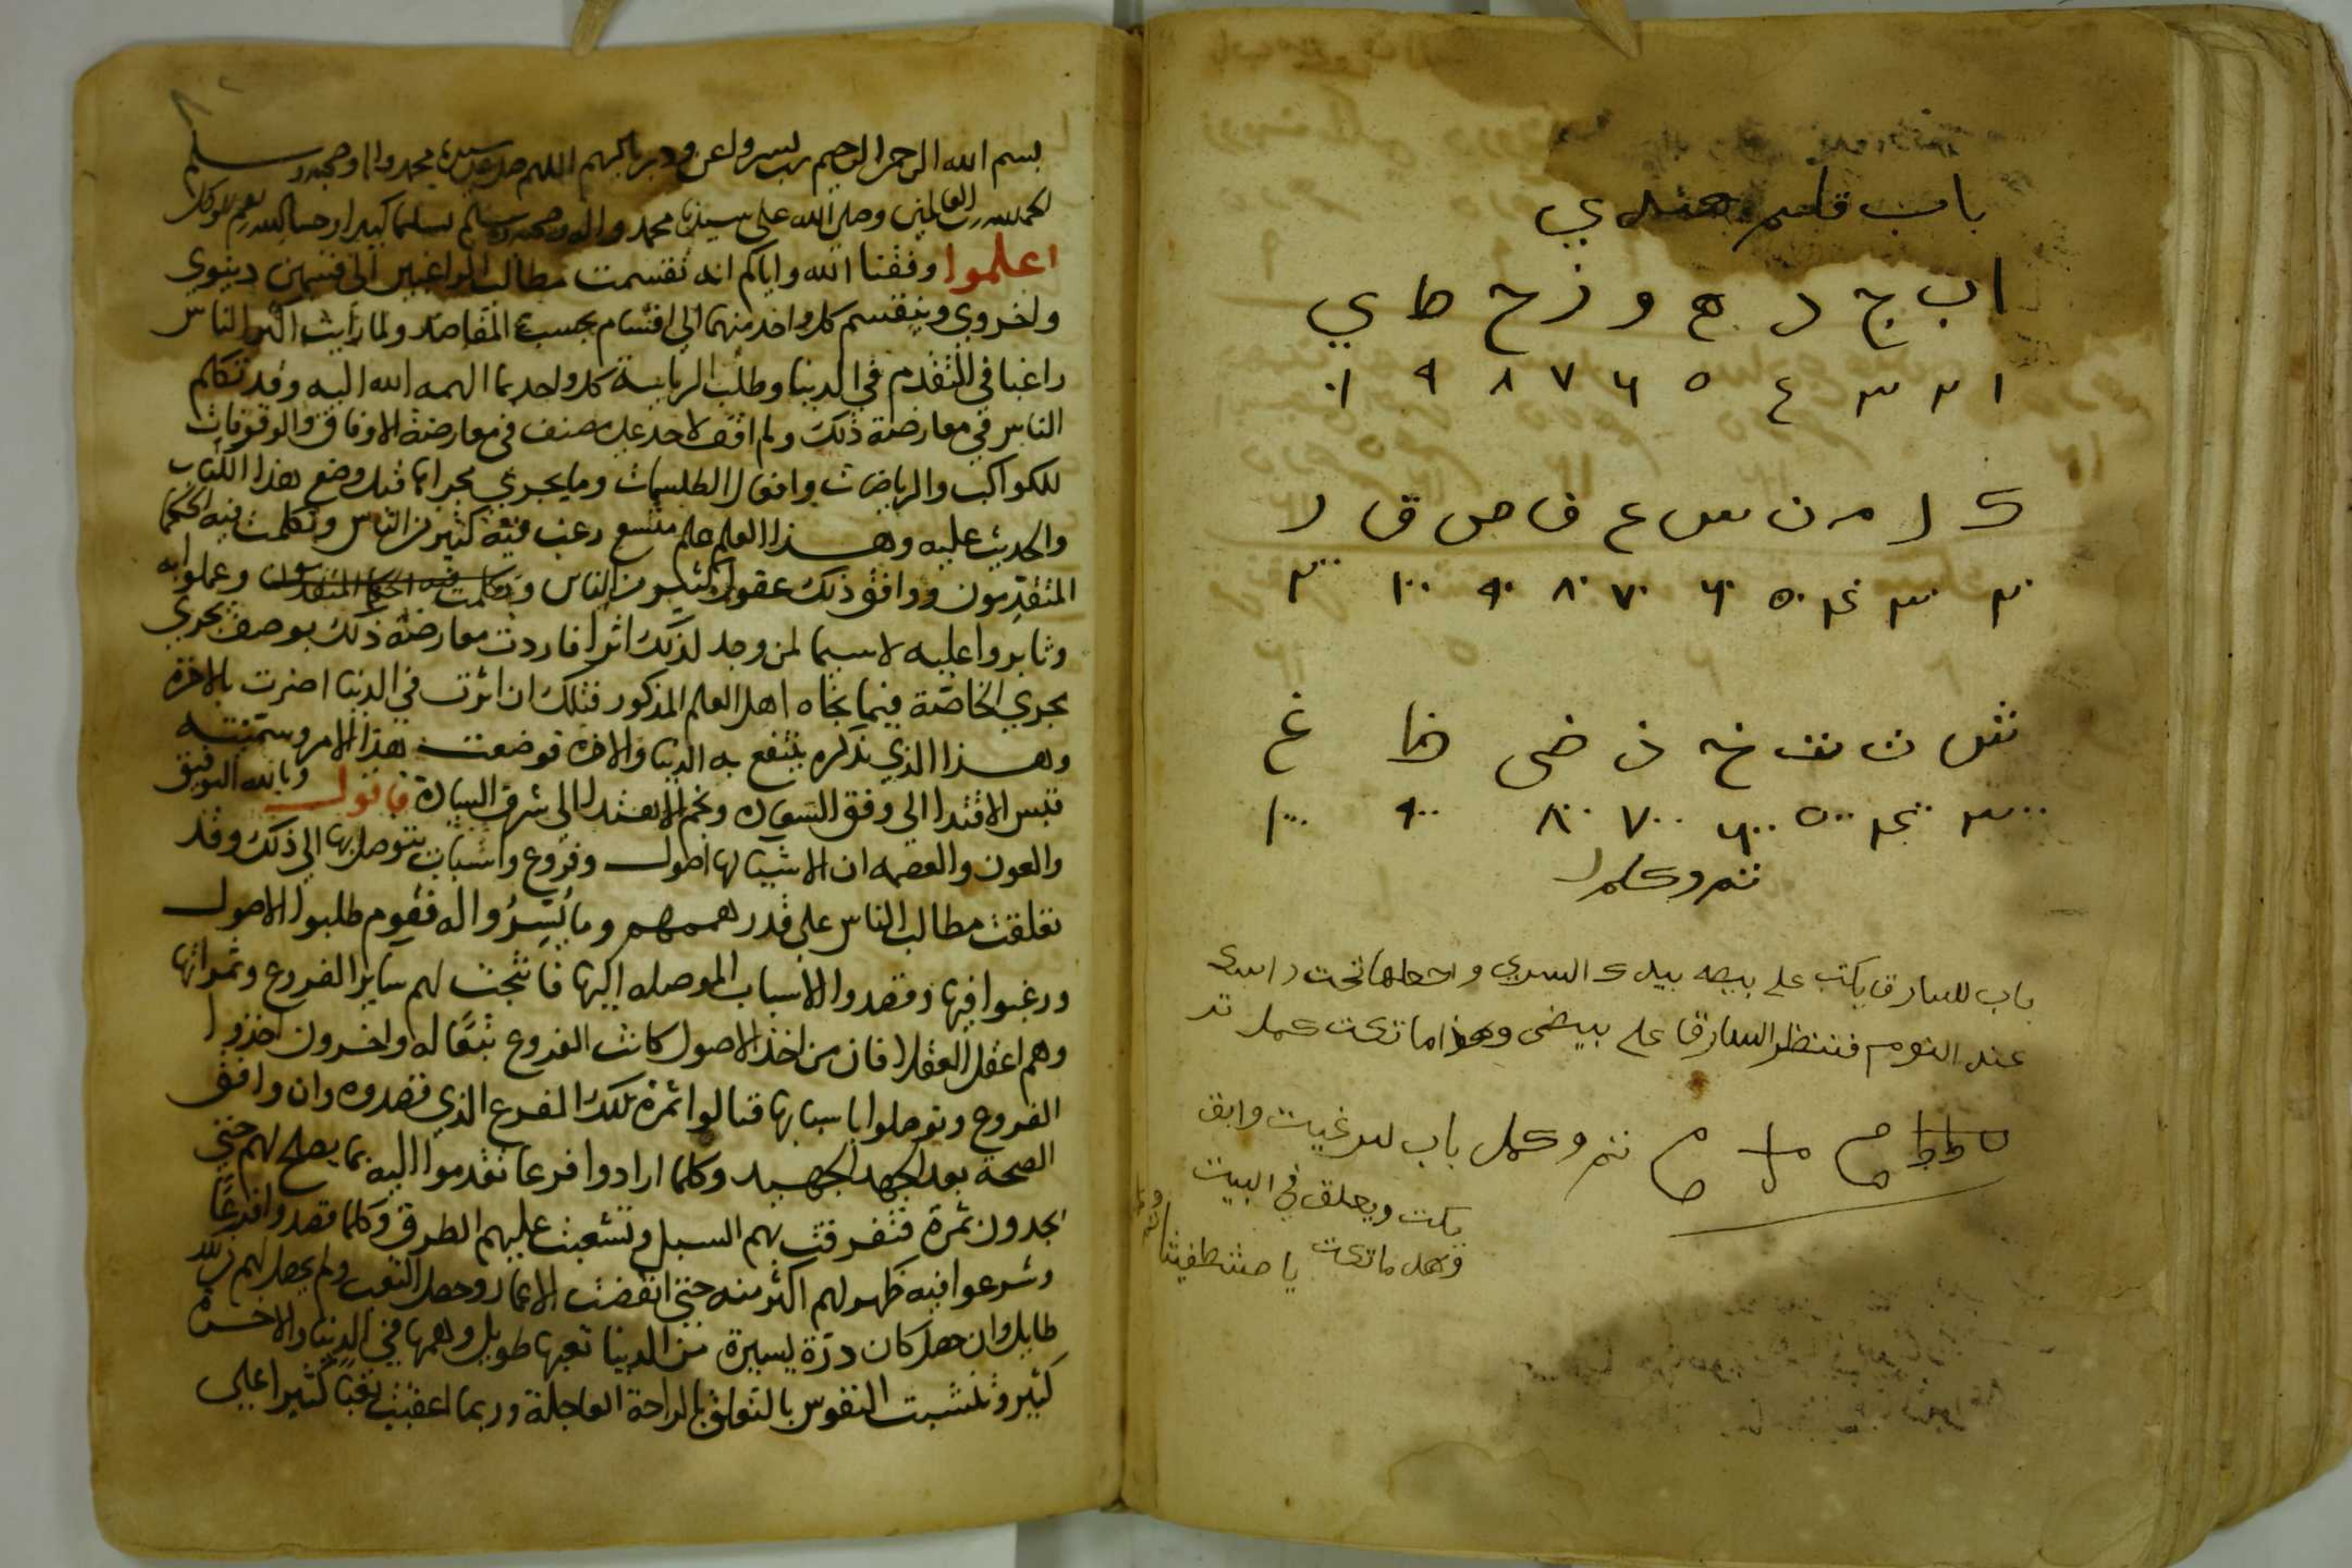 باب قلم هندي
ا ب ج د ه و ز ح ط ي
١ ٢ ٣ ٤ ٥ ٦ ٧ ٨ ٩ ١٠
ك ل م ن س ع ف ص ق ر
٢٠ ٣٠ ٤٠ ٥٠ ٦٠ ٧٠ ٨٠ ٩٠ ١٠٠ ٢٠٠
ش ت ث خ ذ ض ظ غ
٣٠٠ ٤٠٠ ٥٠٠ ٦٠٠ ٧٠٠ ٨٠٠ ٩٠٠ ١٠٠٠
تم وكمل
باب للسارق يكتب على بيضه بيدك اليسرى واجعلها تحت راسك
عند النوم فتنظر السارق على بيضى وهذا ما تكت كمل تم
تم وكمل باب لمن غيب وابق
يكت ويعلق في البيت
وهد ما تكت
بسم الله الرحمن الرحيم رب يسر واعن ودبر يا كريم اللهم صل على سيدنا محمد واله وصحبه وسلم
الحمد لله رب العالمين وصلى الله على سيدنا محمد واله وصحبه وسلم تسليما كثيرا وحسبنا الله ونعم الوكيل
اعلموا وفقنا الله واياكم انه تقسمت مطالب الراغبين الى قسمين دينوي
واخروي وينقسم كل واحد منهما الى اقسام بحسب المقاصد ولما رأيت اكثر الناس
راغبا في التقدم في الدنيا وطلب الرياسة كل واحد بما الهمه الله اليه وقد تكلم
الناس في معارضة ذلك ولم اقف لاحد على مصنف في معارضة الاوفاق والوقوفات
للكواكب والرياضات وافعال الطلسمات وما يجري مجراها قبل وضع هذا الكتاب
والحديث عليه وهذا العلم علم متسع رغب فيه كثير من الناس وتكلمت فيه الحكما
المتقدمون ووافق ذلك عقول كثير من الناس وتكلمت فيه الحكما المتقدمون وعملوا به
وثابروا عليه لاسيما لمن وجد لذلك اثرا فاردت معارضة ذلك بوصف يجري
مجري الخاصة فيما نحاه اهل العلم المذكور فتلك ان اثرت في الدنيا اضرت بالاخرة
وهذا الذي نذكره ينتفع به الدنيا والاخره فوضعت هذا الامر وسميته
قبس الاقتدا الى وفق السعاده ونجم الاهتدا الى شرف السيادة فاقول وبالله التوفيق
والعون والعصمه ان الاشيا لها اصول وفروع واسباب يتوصل بها الى ذلك وقد
تعلقت مطالب الناس على قدر هممهم وما يُسِّرُوا له فقوم طلبوا الاصول
ورغبوا فيها وقصدوا الاسباب الموصله اليها فانتجت لهم ساير الفروع وثمراتها
وهم اعقل العقلا فان من اخذ الاصول كانت الفروع تبعًا له واخرون اخذوا
الفروع وتوصلوا باسبابها فنالوا ثمرة تلك الفرع الذي قصدوه وان وافق
الصحة بعد الجهد الجهيد وكلما ارادوا فرعا تقدموا اليه بما يصلح لهم حتى
يجدون ثمرة فتفرقت بهم السبل وتشعبت عليهم الطرق وكلما قصدوا فرعًا
وشرعوا فيه ظهر لهم اكثر منه حتى انقضت الاعمار وحصل التعب ولم يحصل لهم
طايل وان حصل كان ذرة يسيرة من الدنيا تعبها طويل وهمها في الدنيا والاخرة
كثير وتشبت النفوس بالتعلق بالراحة العاجلة وربما اعقبت تعبًا كثيرا على